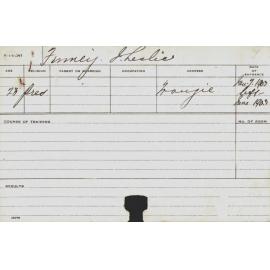 Finney J. Leslie
AGE RELIGION PARENT OR GUARDIAN OCCUPATION ADDRESS DATE OF ENTRANCE
23 Pres Trangie
left
June 1903
COURSE OF TRAINING NO. OF ROOM
RESULTS